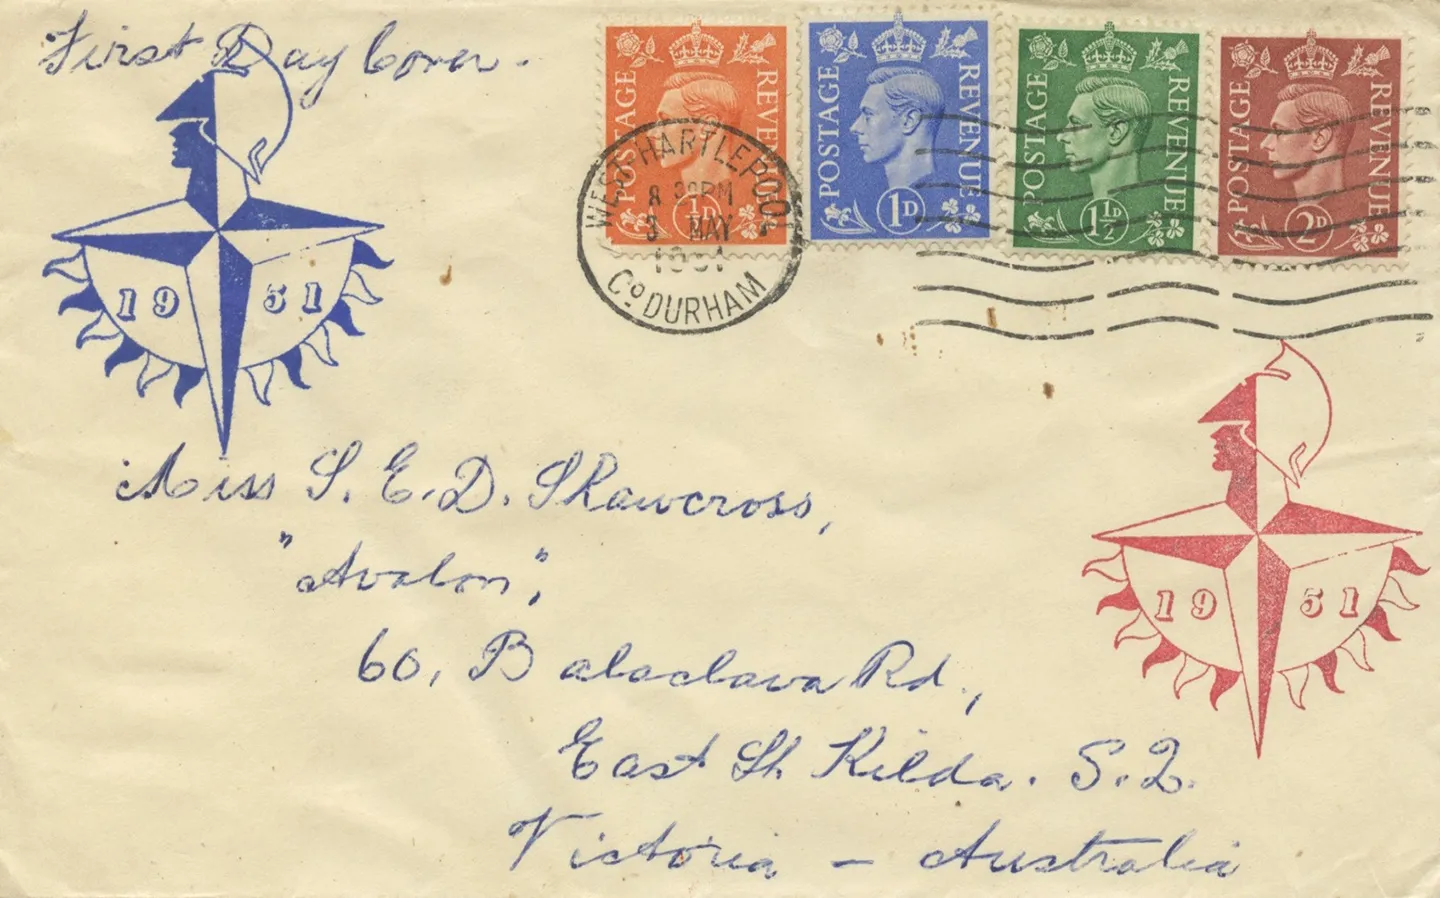 First Day Cover.
POSTAGE REVENUE ½D
POSTAGE REVENUE 1D
POSTAGE REVENUE 1½D
POSTAGE REVENUE 2D
WEST HARTLEPOOL
8 30PM
3 MAY
1951
Co DURHAM
1951
Miss S. E. D. Shawcross,
"Avalon",
60, Balaclava Rd.,
East St. Kilda. S.2.
Victoria – Australia
1951